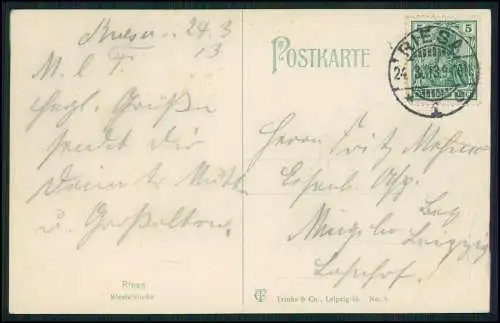 Riesa 24.3
13
M. l. F.
Herzl. Grüße
sendet dir
Deine tr. Mutter
u. Großeltern.
Riesa
POSTKARTE
5 5
RIESA
24. 3. 13. 9
Herrn Fritz
Eisenb.
Mügeln Bez
Leipzig
Bahnhof.
Trinks & Co., Leipzig-M. No.